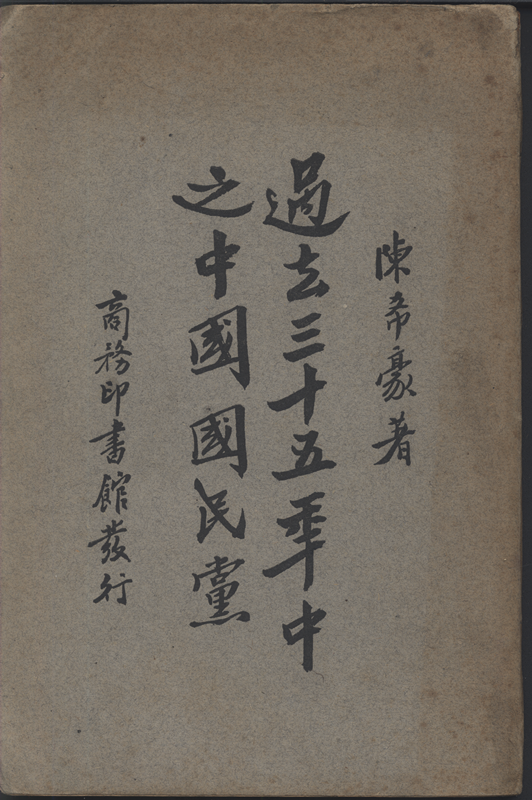 陳希豪著
過去三十五年中
之中國國民黨
商務印書館發行